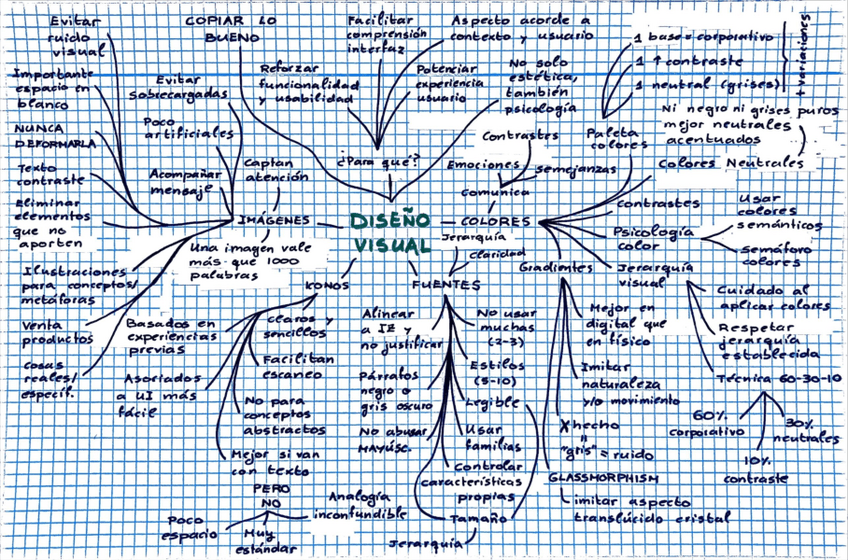 Evitar
ruido
visual
COPIAR LO
BUENO
Facilitar
comprensión
interfaz
Aspecto acorde a
contexto y usuario
1 base = corporativo
1 ↑ contraste
1 neutral (grises)
+ variaciones
Importante
espacio en
blanco
Evitar
sobrecargadas
Reforzar
funcionalidad
y usabilidad
Potenciar
experiencia
usuario
No solo
estética,
también
psicología
Ni negro ni grises puros
mejor neutrales
acentuados
NUNCA
DEFORMARLA
Poco
artificiales
Contrastes
Paleta
colores
Texto
contraste
Acompañar
mensaje
Captan
atención
¿Para qué?
Emociones
semejanzas
Comunica
Colores Neutrales
Eliminar
elementos
que no
aporten
IMÁGENES
DISEÑO
VISUAL
COLORES
contrastes
Usar
colores
semánticos
Psicología
color
Semáforo
colores
Una imagen vale
más que 1000
palabras
Jerarquía
claridad
Gradientes
Jerarquía
visual
Ilustraciones
para conceptos/
metáforas
IKONOS
FUENTES
Cuidado al
aplicar colores
Venta
productos
Basados en
experiencias
previas
claros y
sencillos
Alinear
a IZ y
no justificar
No usar
muchas
(2-3)
Mejor en
digital que
en físico
Respetar
jerarquía
establecida
Cosas
reales/
específ.
Asociados
a UI más
fácil
Facilitan
escaneo
Párrafos
negro o
gris oscuro
Estilos
(5-10)
Imitar
naturaleza
y/o movimiento
Técnica 60-30-10
No para
conceptos
abstractos
Legible
60%
corporativo
30%
neutrales
10%
contraste
No abusar
MAYÚSC.
Usar
familias
X hecho
=
"gris" = ruido
Mejor si van
con texto
Controlar
características
propias
GLASSMORPHISM
imitar aspecto
translúcido cristal
PERO
NO
Analogía
inconfundible
Poco
espacio
Muy
estándar
Tamaño
Jerarquía